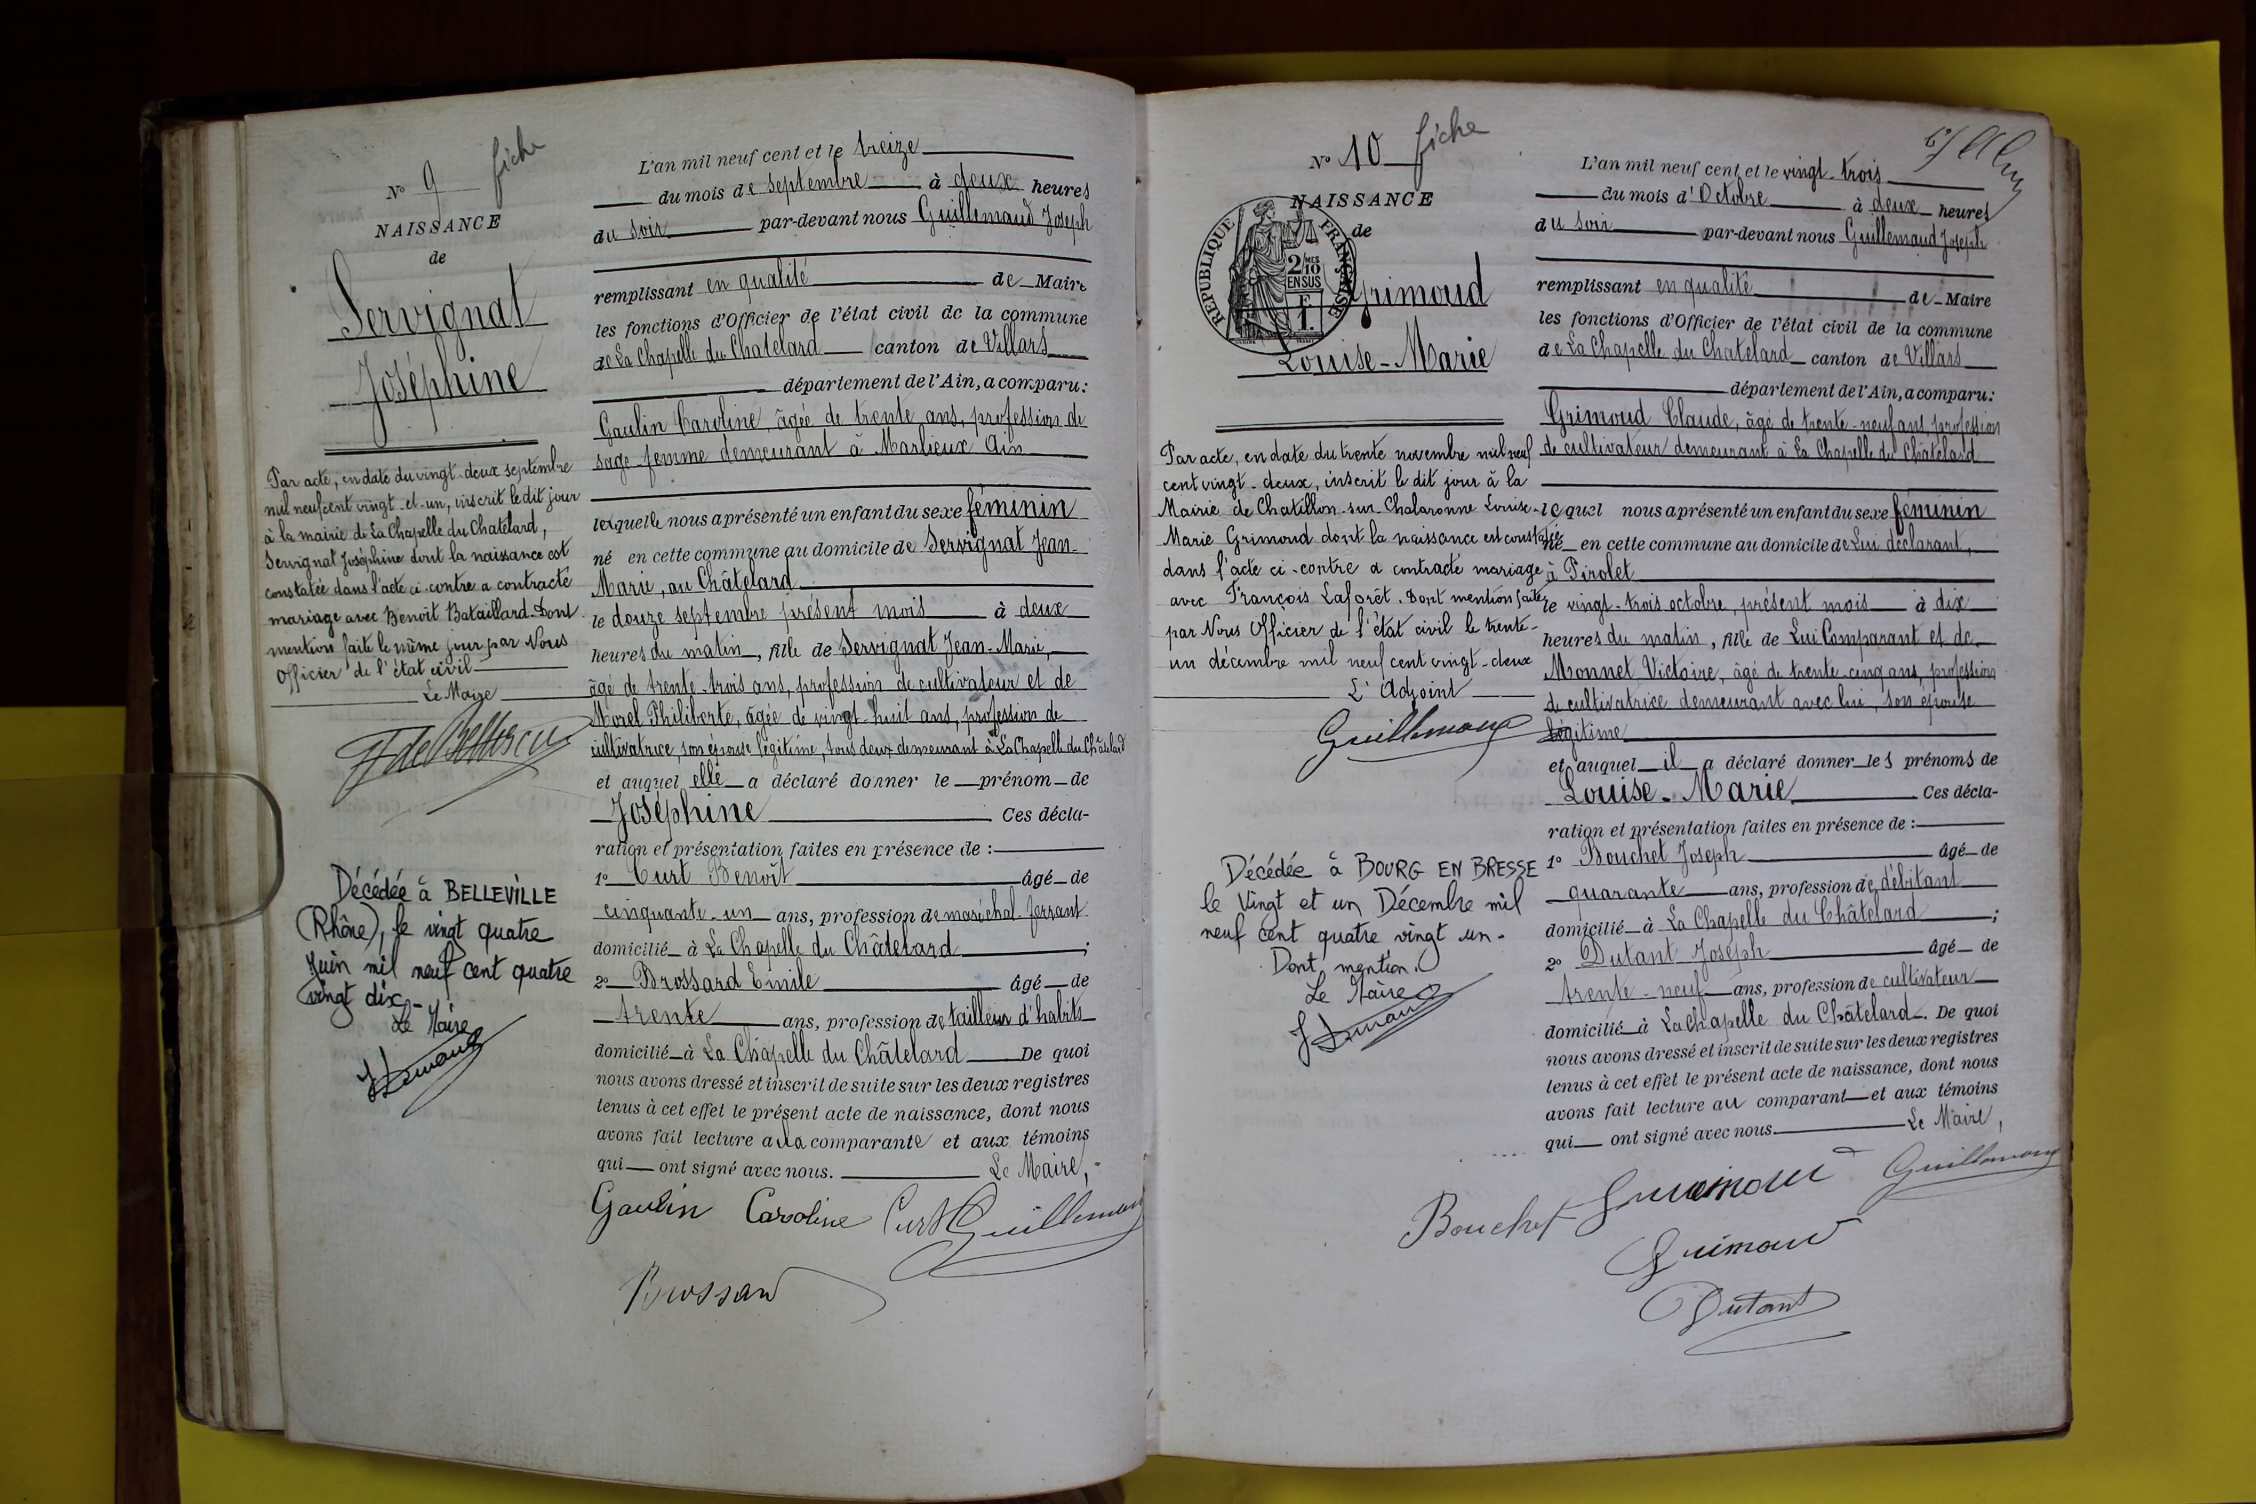 N° 9 fiche
NAISSANCE
de
Servignat
Joséphine
Par acte, en date du vingt-deux septembre
mil neuf cent vingt-et-un, inscrit le dit jour
à la mairie de La Chapelle du Chatelard,
Servignat Joséphine dont la naissance est
constatée dans l'acte ci-contre a contracté
mariage avec Benoît Bataillard. Dont
mention faite le même jour par Nous
Officier de l'état civil
Le Maire
Décédée à BELLEVILLE
(Rhône), le vingt quatre
Juin mil neuf cent quatre
vingt dix.
Le Maire
L'an mil neuf cent et le treize
du mois de septembre à deux heures
du soir par-devant nous Guillemaud Joseph
remplissant en qualité de Maire
les fonctions d'Officier de l'état civil de la commune
de La Chapelle du Chatelard canton de Villars
département de l'Ain, a comparu:
Gaulin Caroline, âgée de trente ans, profession de
sage-femme demeurant à Marlieux Ain
lequelle nous a présenté un enfant du sexe féminin
né en cette commune au domicile de Servignat Jean-
Marie, au Châtelard
le douze septembre présent mois à deux
heures du matin, fille de Servignat Jean-Marie,
âgé de trente-trois ans, profession de cultivateur et de
Morel Philiberte, âgée de vingt-huit ans, profession de
cultivatrice, son épouse légitime, tous deux demeurant à La Chapelle du Châtelard
et auquel elle a déclaré donner le prénom de
Joséphine Ces décla-
ration et présentation faites en présence de :
1° Curt Benoît âgé de
cinquante-un ans, profession de maréchal-ferrant
domicilié à La Chapelle du Châtelard ;
2° Brossard Emile âgé de
trente ans, profession de tailleur d'habits
domicilié à La Chapelle du Châtelard De quoi
nous avons dressé et inscrit de suite sur les deux registres
tenus à cet effet le présent acte de naissance, dont nous
avons fait lecture a la comparante et aux témoins
qui ont signé avec nous. Le Maire,
Gaulin Caroline Curt Guillemaud
Brossard
N° 10 fiche
NAISSANCE
de
RÉPUBLIQUE FRANÇAISE
2/10 MES
EN SUS
F.
1.
Grimoud
Louise-Marie
Par acte, en date du trente novembre mil neuf
cent vingt-deux, inscrit le dit jour à la
Mairie de Chatillon-sur-Chalaronne Louise-
Marie Grimoud dont la naissance est constatée
dans l'acte ci-contre a contracté mariage
avec François Laforêt. Dont mention faite
par Nous Officier de l'état civil le trente-
un décembre mil neuf cent vingt-deux
L'Adjoint
Guillemaud
Décédée à BOURG EN BRESSE
le Vingt et un Décembre mil
neuf cent quatre vingt un.
Dont mention.
Le Maire
L'an mil neuf cent et le vingt-trois
du mois d'Octobre à deux heures
du soir par-devant nous Guillemaud Joseph
remplissant en qualité de Maire
les fonctions d'Officier de l'état civil de la commune
de La Chapelle du Chatelard canton de Villars
département de l'Ain, a comparu:
Grimoud Claude, âgé de trente-neuf ans, profession
de cultivateur demeurant à La Chapelle du Châtelard
lequel nous a présenté un enfant du sexe féminin
né en cette commune au domicile de Lui déclarant,
à Pirolet
le vingt-trois octobre, présent mois à dix
heures du matin, fille de Lui Comparant et de
Monnet Victoire, âgé de trente-cinq ans, profession
de cultivatrice demeurant avec lui, son épouse
légitime
et auquel il a déclaré donner les prénoms de
Louise-Marie Ces décla-
ration et présentation faites en présence de :
1° Bouchet Joseph âgé de
quarante ans, profession de débitant
domicilié à La Chapelle du Châtelard ;
2° Dutant Joseph âgé de
trente-neuf ans, profession de cultivateur
domicilié à La Chapelle du Châtelard. De quoi
nous avons dressé et inscrit de suite sur les deux registres
tenus à cet effet le présent acte de naissance, dont nous
avons fait lecture au comparant et aux témoins
qui ont signé avec nous Le Maire,
Bouchet Grimoud Guillemaud
Grimoud
Dutant